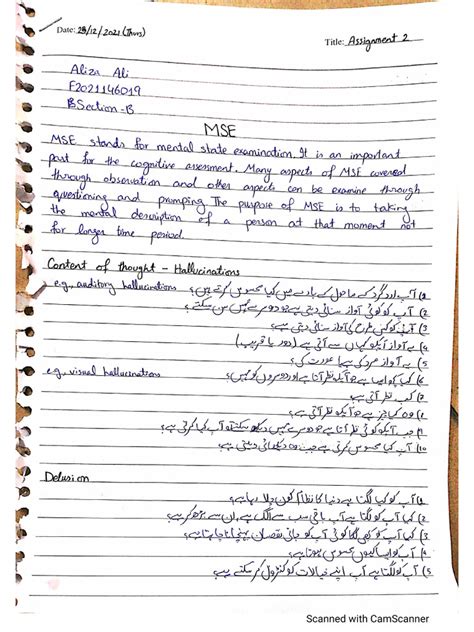 Date: 28/12/2021 (Thurs)
Title: Assignment 2
Aliza Ali
F2021146019
BSection-B
MSE
MSE stands for mental state examination. It is an important
part for the cognitive assesment. Many aspects of MSE covered
through observation and other aspects can be examine through
questioning and The purpose of MSE is to taking
the mental description of a person at that moment not
for longer time period.
Content of thought - Hallucinations
e.g., auditory hallucinations
1) آپ اردگرد کے ماحول کے بارے میں کیا محسوس کرتی ہیں؟
2) آپ کو کوئی آواز سنائی دیتی ہے جو دوسرے نہیں سن سکتے؟
3) آپ کو کس طرح کی آواز سنائی دیتی ہے؟
4) یہ آواز آپکو کہاں سے آتی ہے (دور یا قریب)
5) یہ آواز مرد کی ہے یا عورت کی؟
e.g., visual hallucinations
6) کیا کو ایسا ہے جو آپکو نظر آتا ہے اور دوسروں کو نہیں؟
7) کب نظر آتی ہے
8) وہ کیا چیز ہے جو آپکو نظر آتی ہے؟
9) جب آپکو کوئی نظر آتا ہے جو دوسرے نہیں دیکھ سکتے تو آپ کیا کرتی ہے؟
10) آپ کیا محسوس کرتی ہے جب وہ دکھائی دیتی ہے
Delusion
1) آپ کو کیا لگتا ہے دنیا کا نظام کون چلا رہا ہے؟
2) کیا آپ کو لگتا ہے آپ باقی سب سے الگ ہے، ان سے بڑھ کر ہے
3) کیا آپ کو کبھی لگا کوئی آپ کو جانی نقصان پہنچانا چاہتا ہے؟
4) آپ کو ایسا کیوں محسوس ہوتا ہے؟
5) آپ کو لگتا ہے آپ اپنے خیالات کو کنٹرول کر سکتے ہیں
Scanned with CamScanner